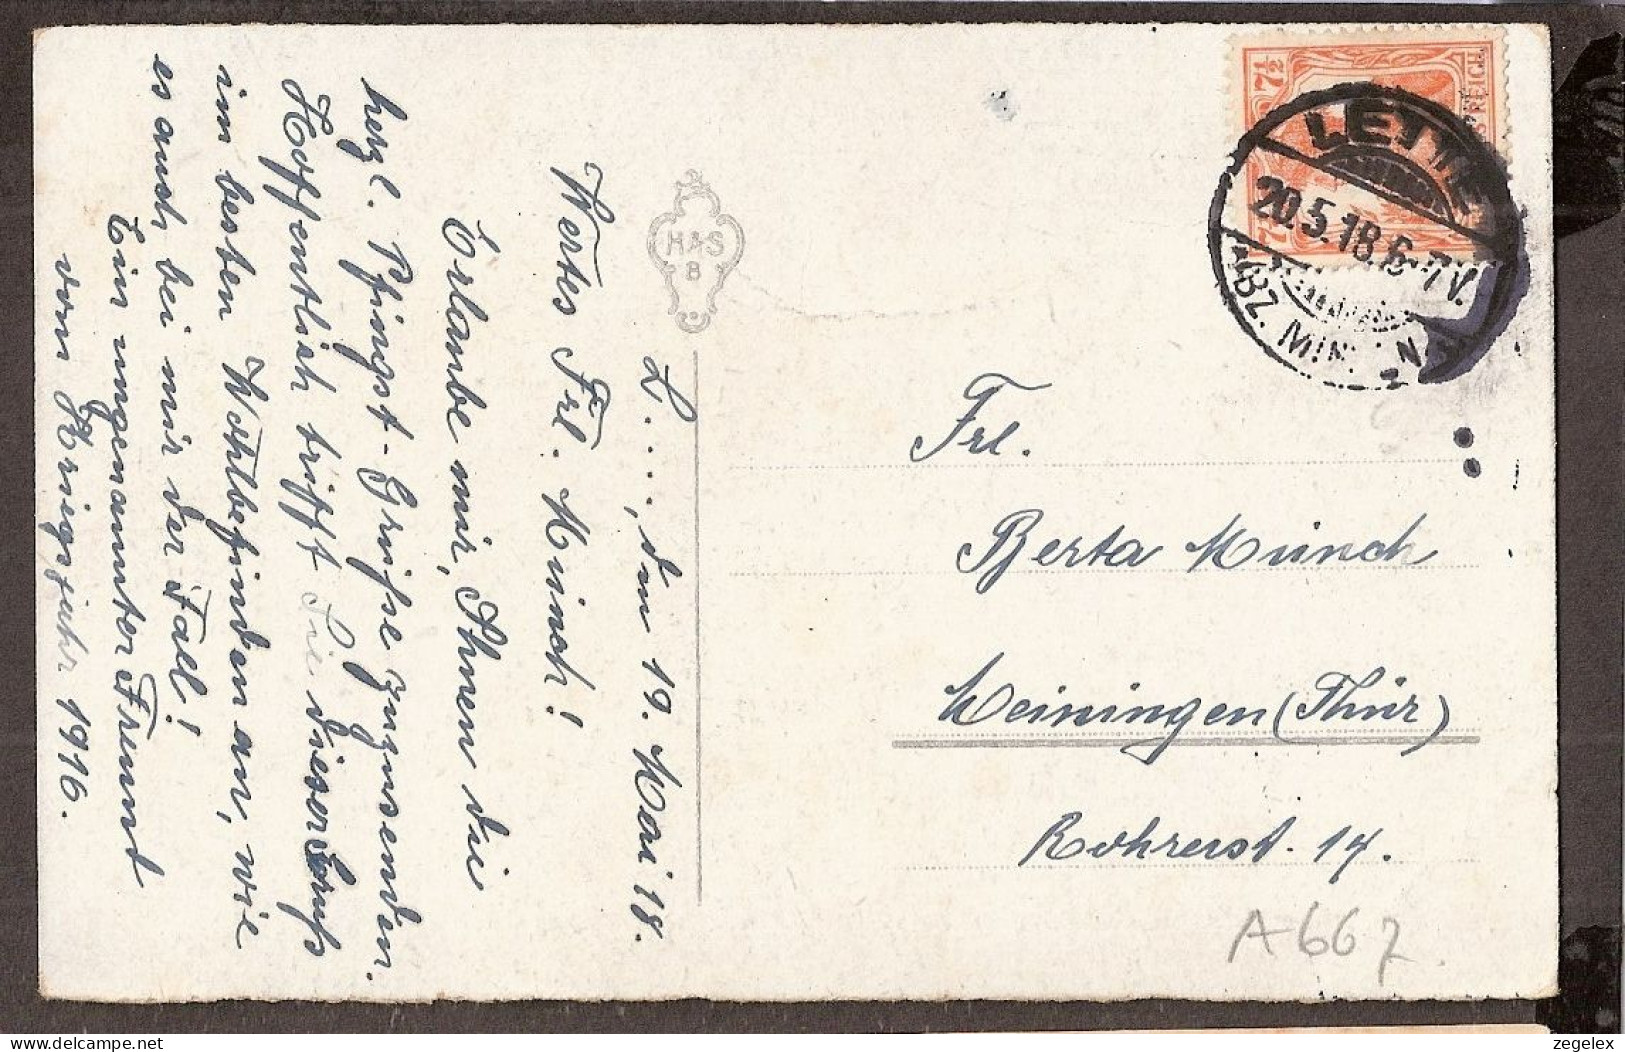 L...., den 19. Mai 18.
Wertes Frl. Münch!
Erlaube mir, Ihnen die
herzl. Pfingst-Grüße zuzusenden.
Hoffentlich trifft Sie dieser Gruß
im besten Wohlbefinden an, wie
es auch bei mir der Fall!
Ein ungenannter Freund
vom Kriegsjahr 1916.
H & S
B
7½
REICH
7
LETTE
20.5.18.6-7V.
(BZ. MÜN
Frl.
Berta Münch
Meiningen (Thür)
Rohrerst. 14.
A667
zegelex